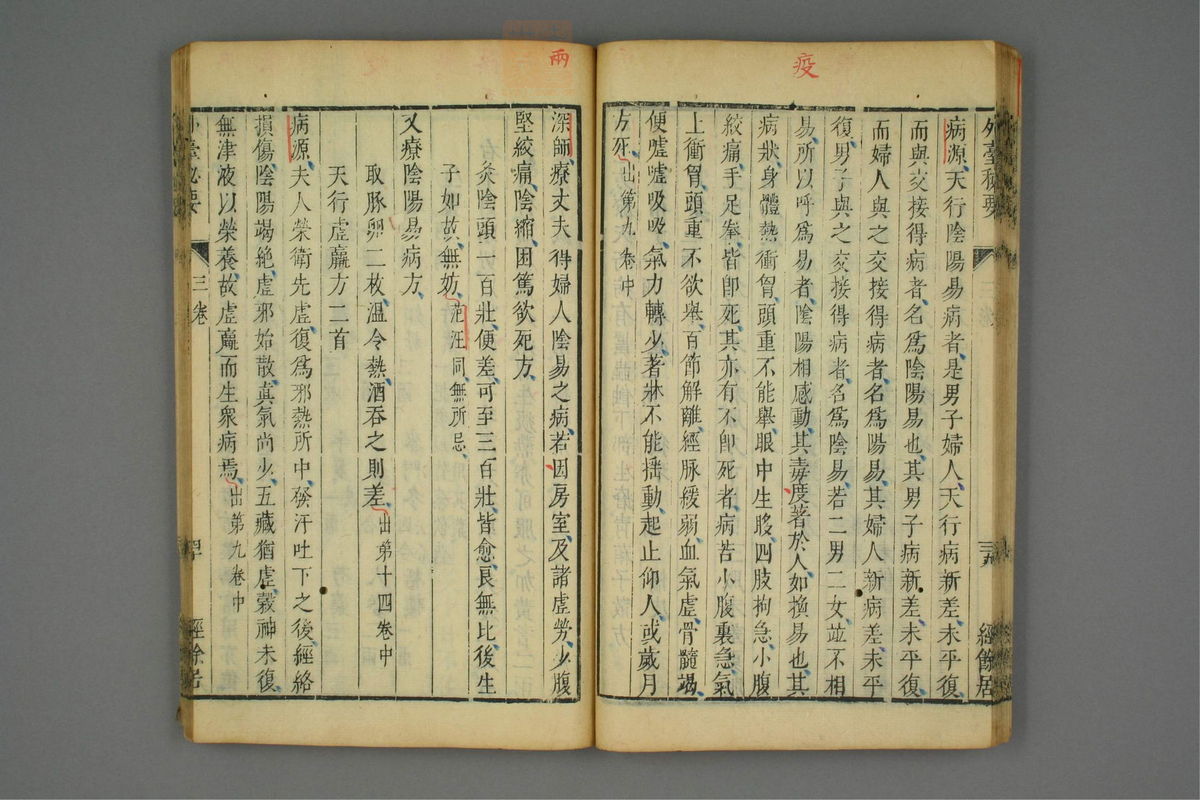 疫
外臺秘要
三卷
三九
經餘居
病源天行陰陽易病者是男子婦人天行病新差未平復
而與交接得病者名爲陰陽易也其男子病新差未平復
而婦人與之交接得病者名爲陽易其婦人新病差未平
復男子與之交接得病者名爲陰易若二男二女並不相
易所以呼爲易者陰陽相感動其毒度著於人如換易也其
病狀身體熱衝胷頭重不能舉眼中生眵四肢拘急小腹
絞痛手足拳皆卽死其亦有不卽死者病苦小腹裏急氣
上衝胷頭重不欲舉百節解離經脉緩弱血氣虛骨髓竭
便噓噓吸吸氣力轉少著牀不能揺動起止仰人或歲月
方死出第九卷中
兩
深師療丈夫得婦人陰易之病若因房室及諸虛勞少腹
堅絞痛陰縮困篤欲死方
灸陰頭一百壯便差可至三百壯皆愈良無比後生
子如故無妨范汪同無所忌
又療陰陽易病方
取豚卵二枚温令熱酒吞之則差出第十四卷中
天行虛羸方二首
病源夫人榮衛先虛復爲邪熱所中發汗吐下之後經絡
損傷陰陽竭絶虛邪始散真氣尚少五藏猶虛穀神未復
無津液以榮養故虛羸而生衆病焉出第九卷中
外臺秘要
三卷
四十
經餘居